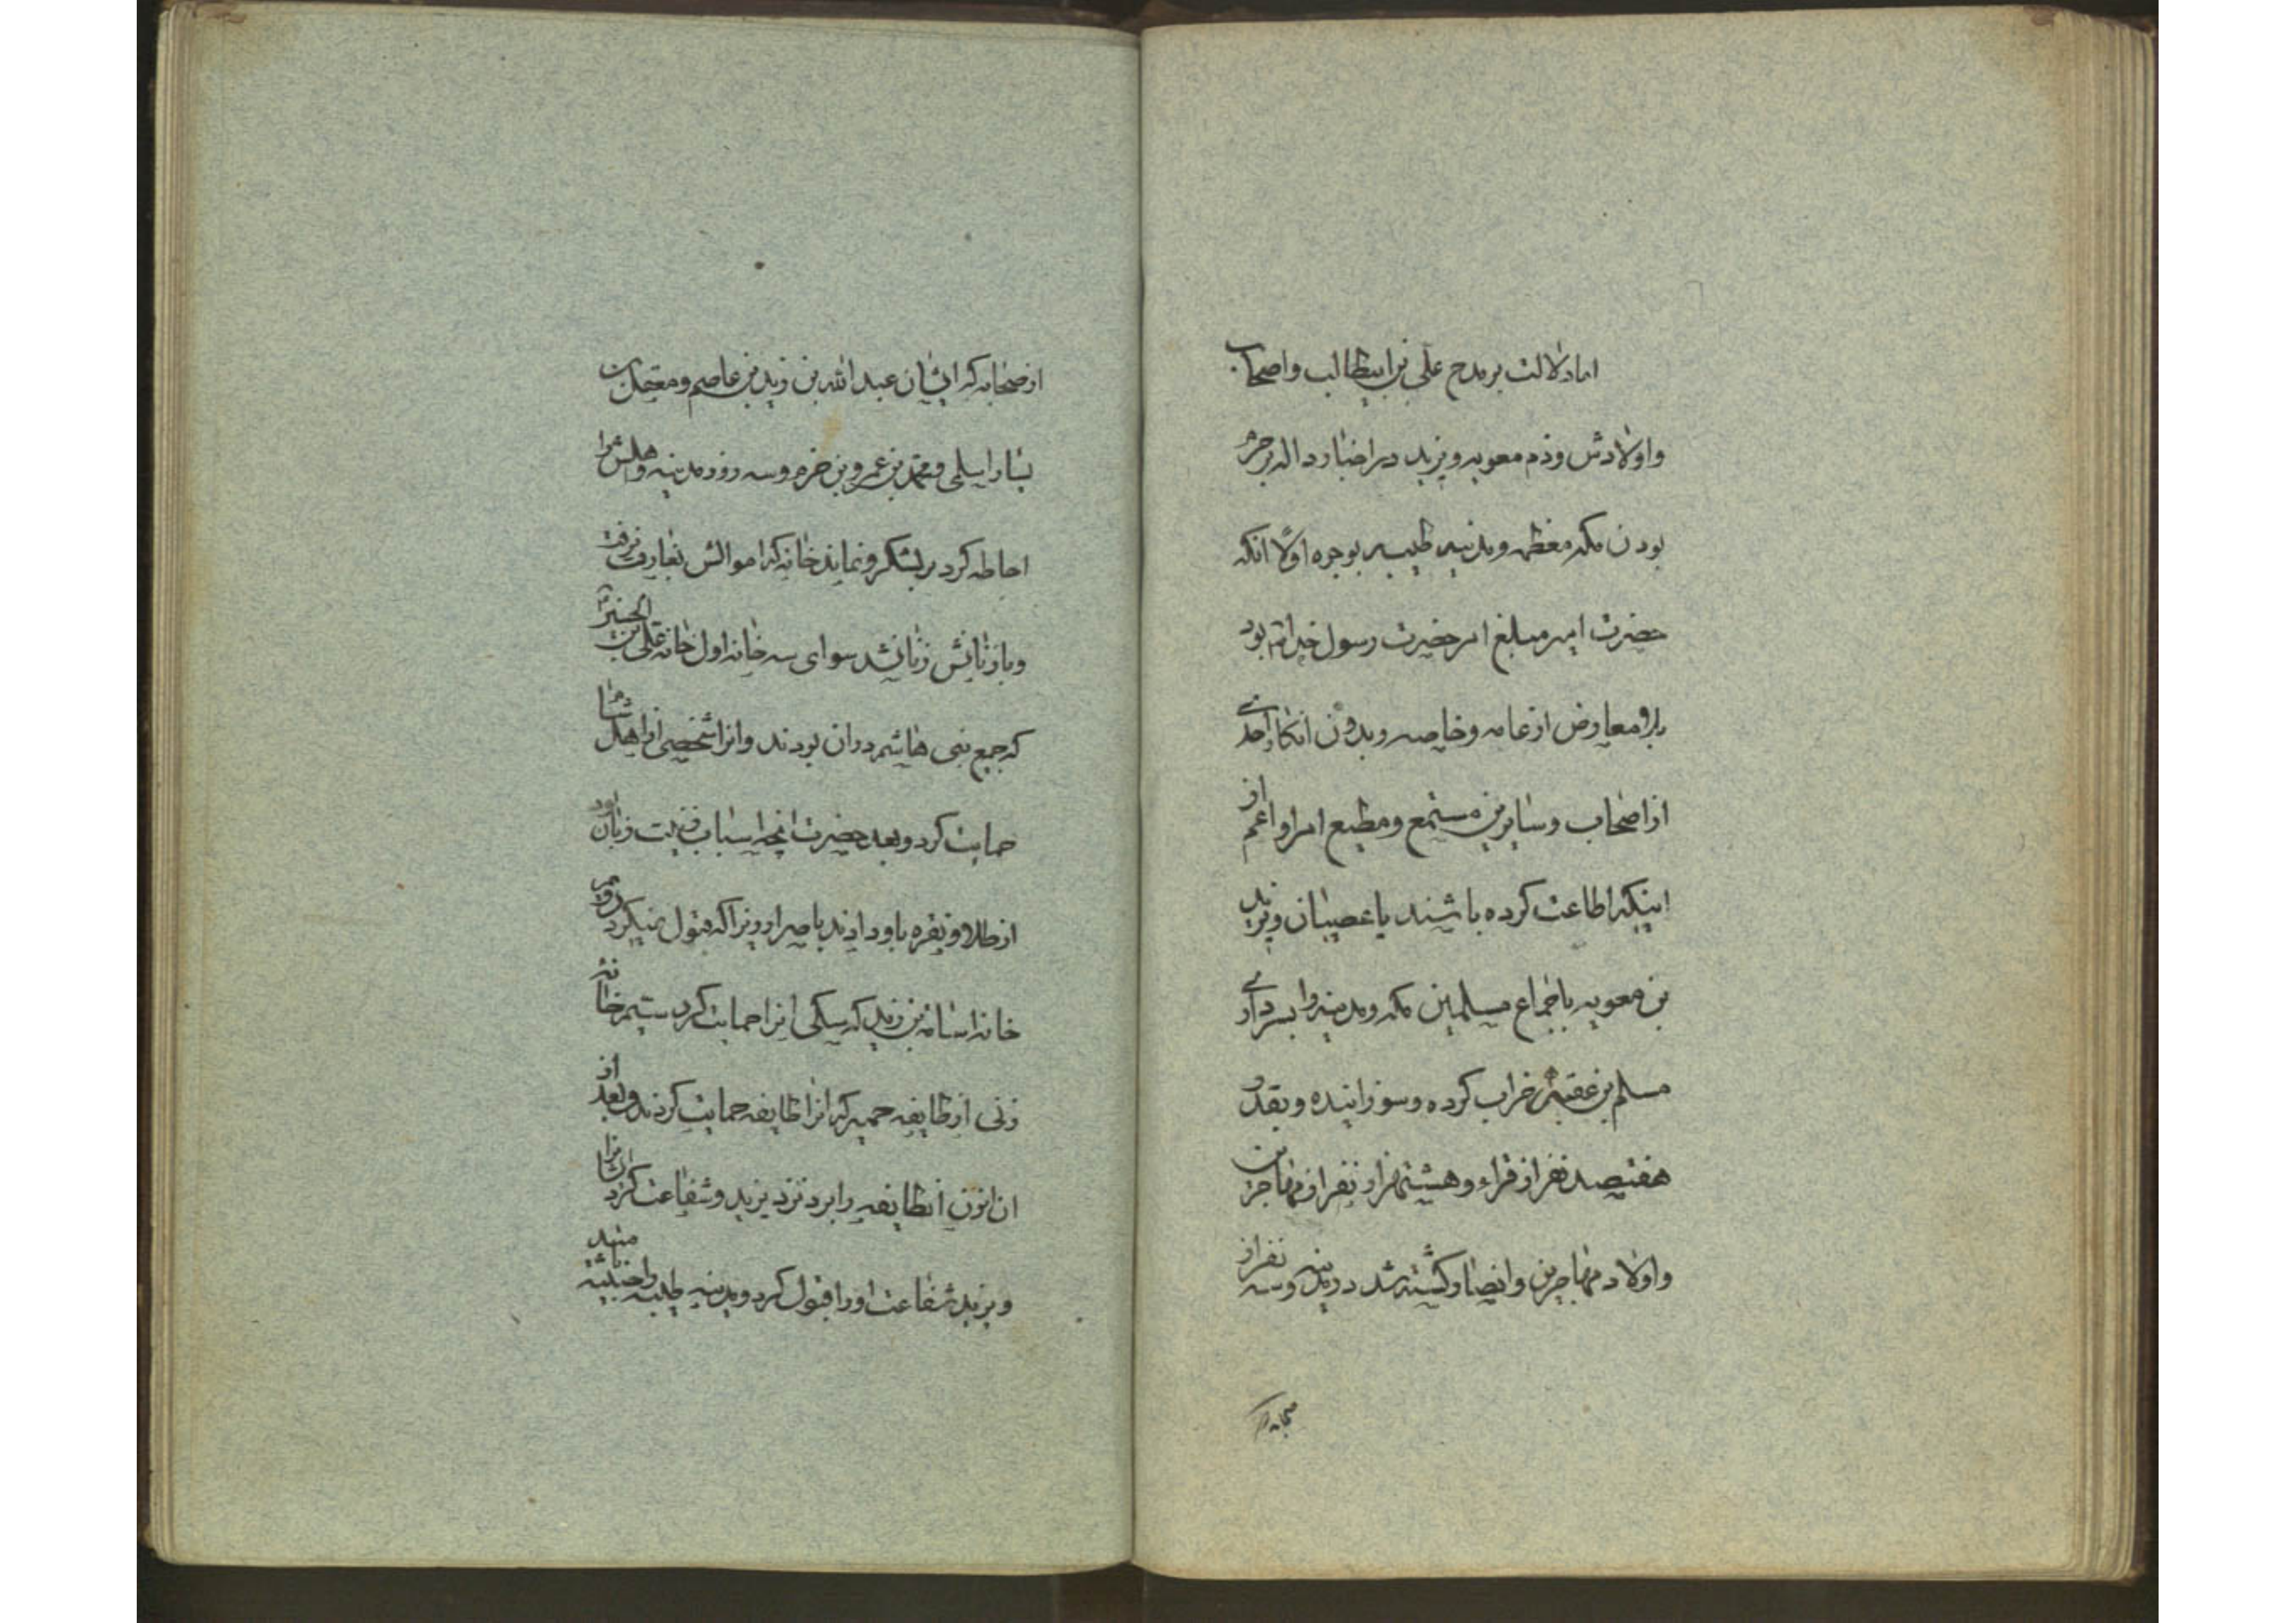 اما دلالت بر مدح علی بن ابیطالب واصحاب
واولادش وذم معویه ویزید در اخبار داله بر حرم
بودن مکه معظمه ومدینه طیبه بوجوه اولا انکه
حضرت امیر مبلغ امر حضرت رسول خدا بود
بلا معارض از عامه وخاصه وبدون انکار احدی
از اصحاب وسایرین مستمع ومطیع امر او اعم از
اینکه اطاعت کرده باشند یا عصیان ویزید
بن معویه باجماع مسلمین مکه ومدینه را بسرداری
مسلم بن عقبه خراب کرده وسوزانیده وبقدر
هفتصد نفر از قراء وهشتهزار نفر از مهاجرین
واولاد مهاجرین وانصار کشته شد در مدینه وسه نفر از
صحابه که
از صحابه که ایشان عبد الله بن زید بن عاصم ومعقل بن
یسار اسلمی ومحمد بن عمرو بن حزم وسه روز مدینه واهلش را
احاطه کرد بر لشکر ونماند خانه که اموالش بغارت نرفت
وبا زنانش زنا نشد سوای سه خانه اول خانه علی بن الحسین
که جمع بنی هاشم در ان بودند وانرا شخصی از اهل شام
حمایت کرد وبعد حضرت انچه اسباب زینت زنان بود
از طلا ونقره باو دادند باصرار زیرا که قبول نمیکرد دویم
خانه اسامه بن زید که سکی انرا حمایت کرد سیم خانه
زنی از طایفه حمیر که انرا طایفه حمایت کردند وبعد از
ان انطایفه را برد نزد یزید وشفاعت کرد انها را
ویزید شفاعت اورا قبول کرد ومدینه طیبه را خبیثه نامید